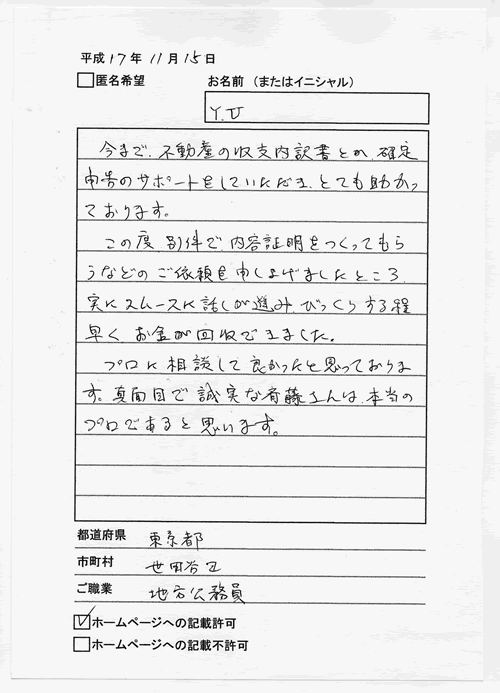 平成17年11月15日
□匿名希望 お名前（またはイニシャル）
Y.U
今まで、不動産の収支内訳書とか、確定
申告のサポートをしていただき、とても助かっ
ております。
この度、別件で、内容証明をつくってもら
うなどのご依頼を申し上げましたところ、
実にスムースに話しが進み、びっくりする程
早く お金が回収できました。
プロに相談して良かったと思っておりま
す。真面目で誠実な斉藤さんは、本当の
プロであると思います。
都道府県 東京都
市町村 世田谷区
ご職業 地方公務員
☑ホームページへの記載許可
□ホームページへの記載不許可